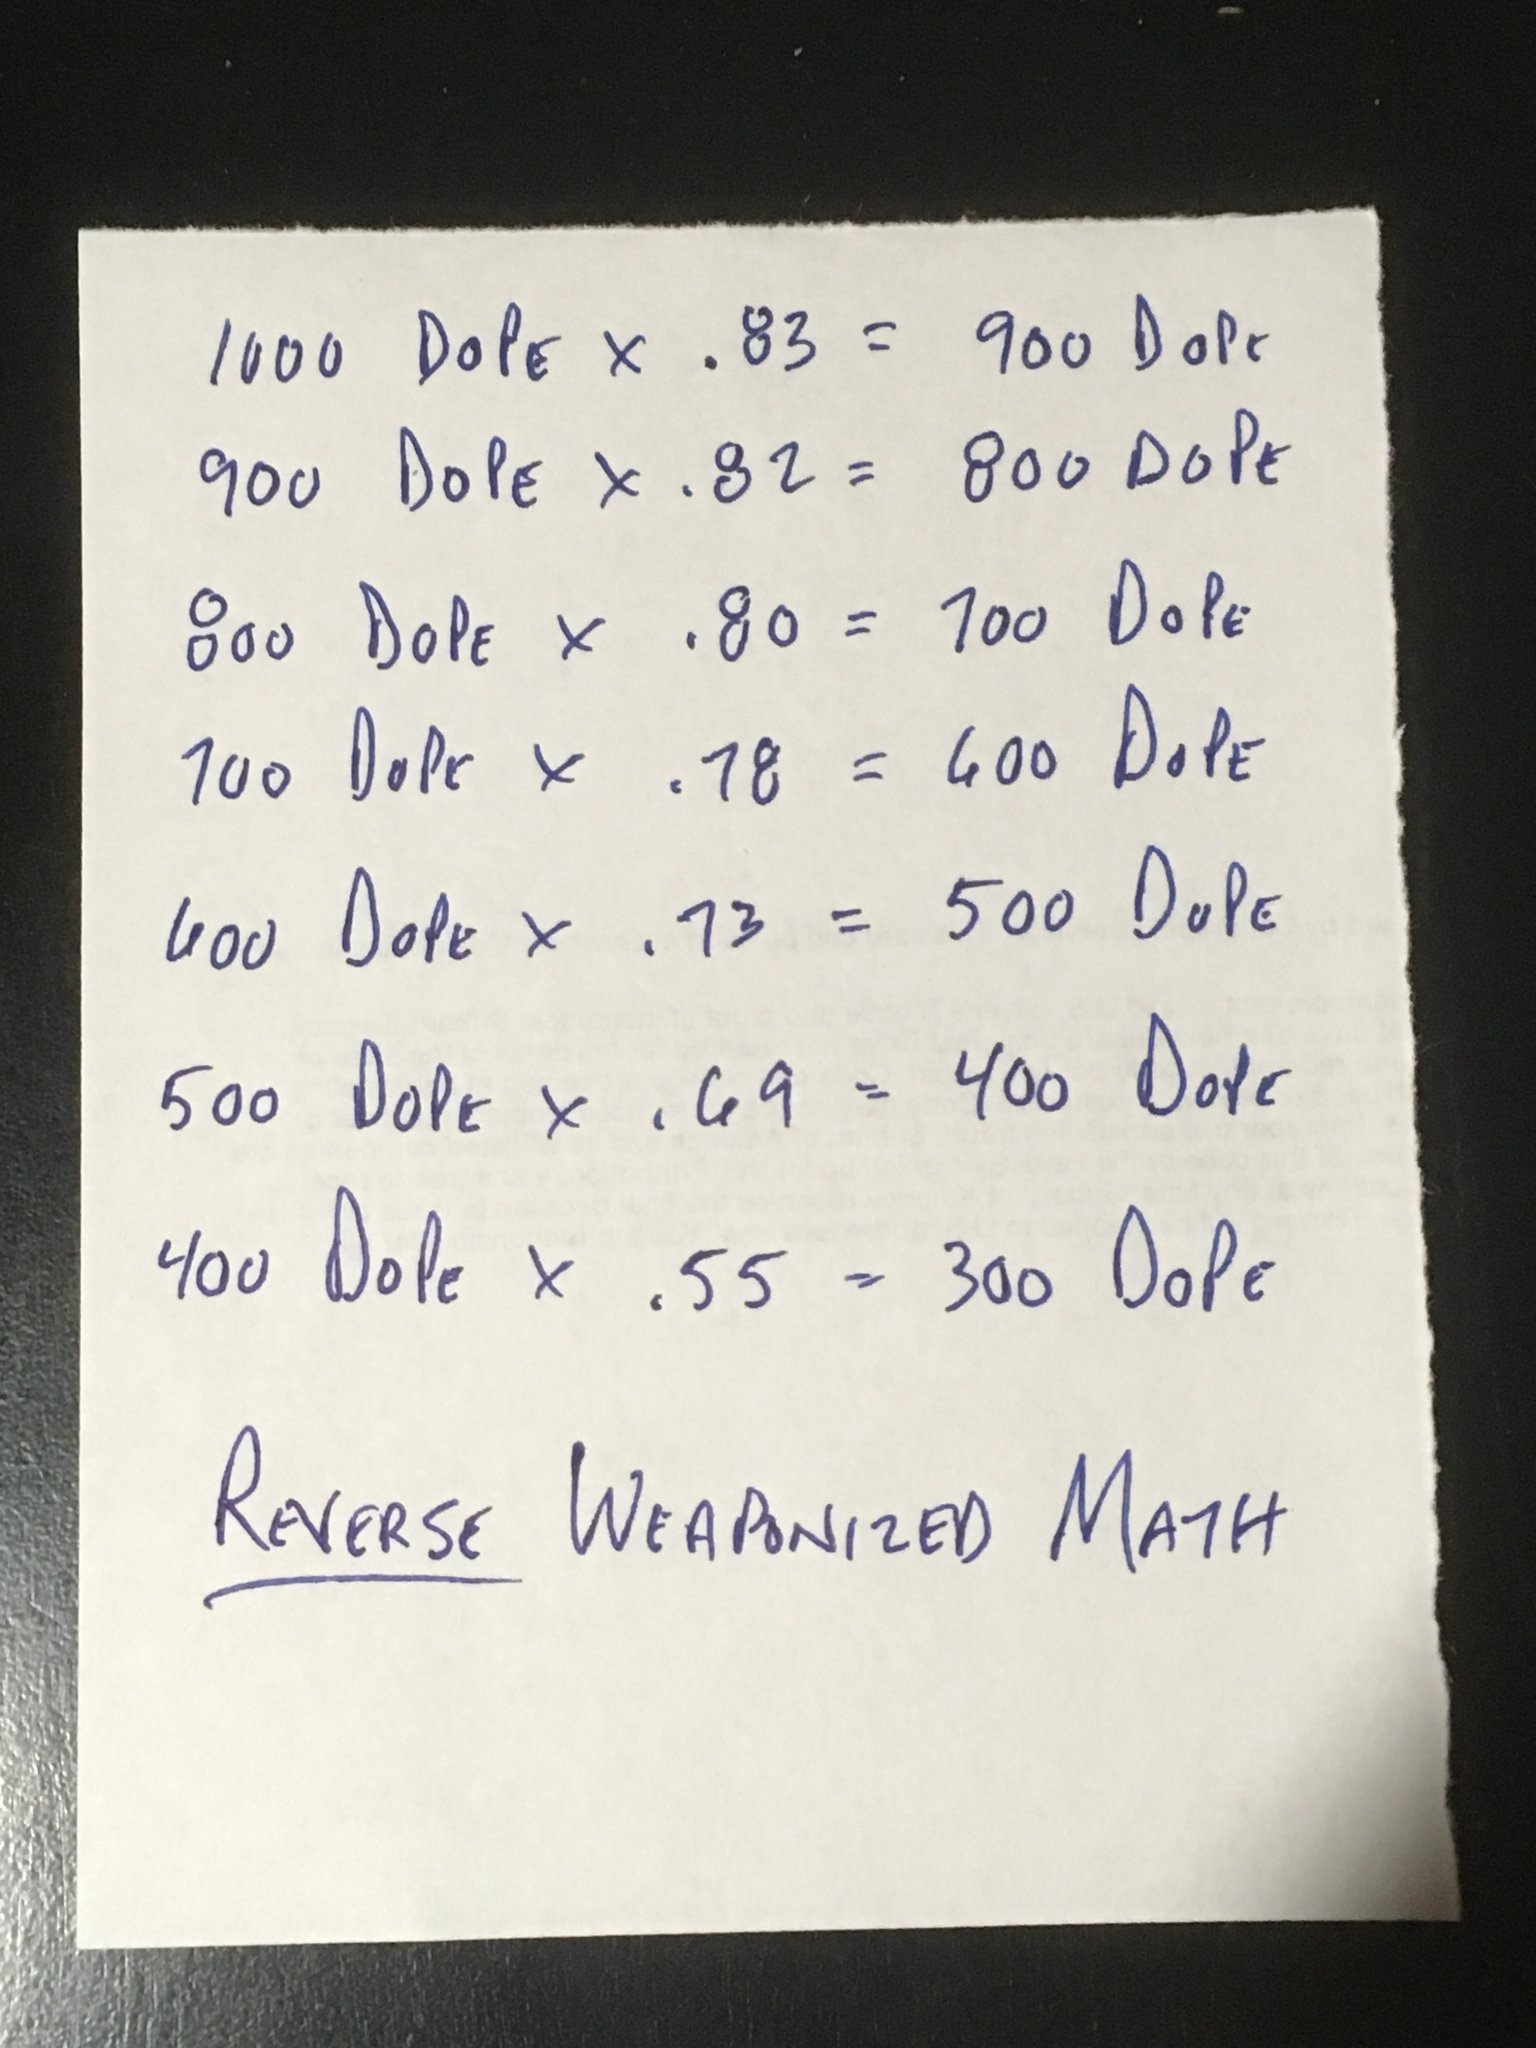 1000 DOPE x .83 = 900 DOPE
900 DOPE x .82 = 800 DOPE
800 DOPE x .80 = 700 DOPE
700 DOPE x .78 = 600 DOPE
600 DOPE x .73 = 500 DOPE
500 DOPE x .69 = 400 DOPE
400 DOPE x .55 = 300 DOPE
REVERSE WEAPONIZED MATH